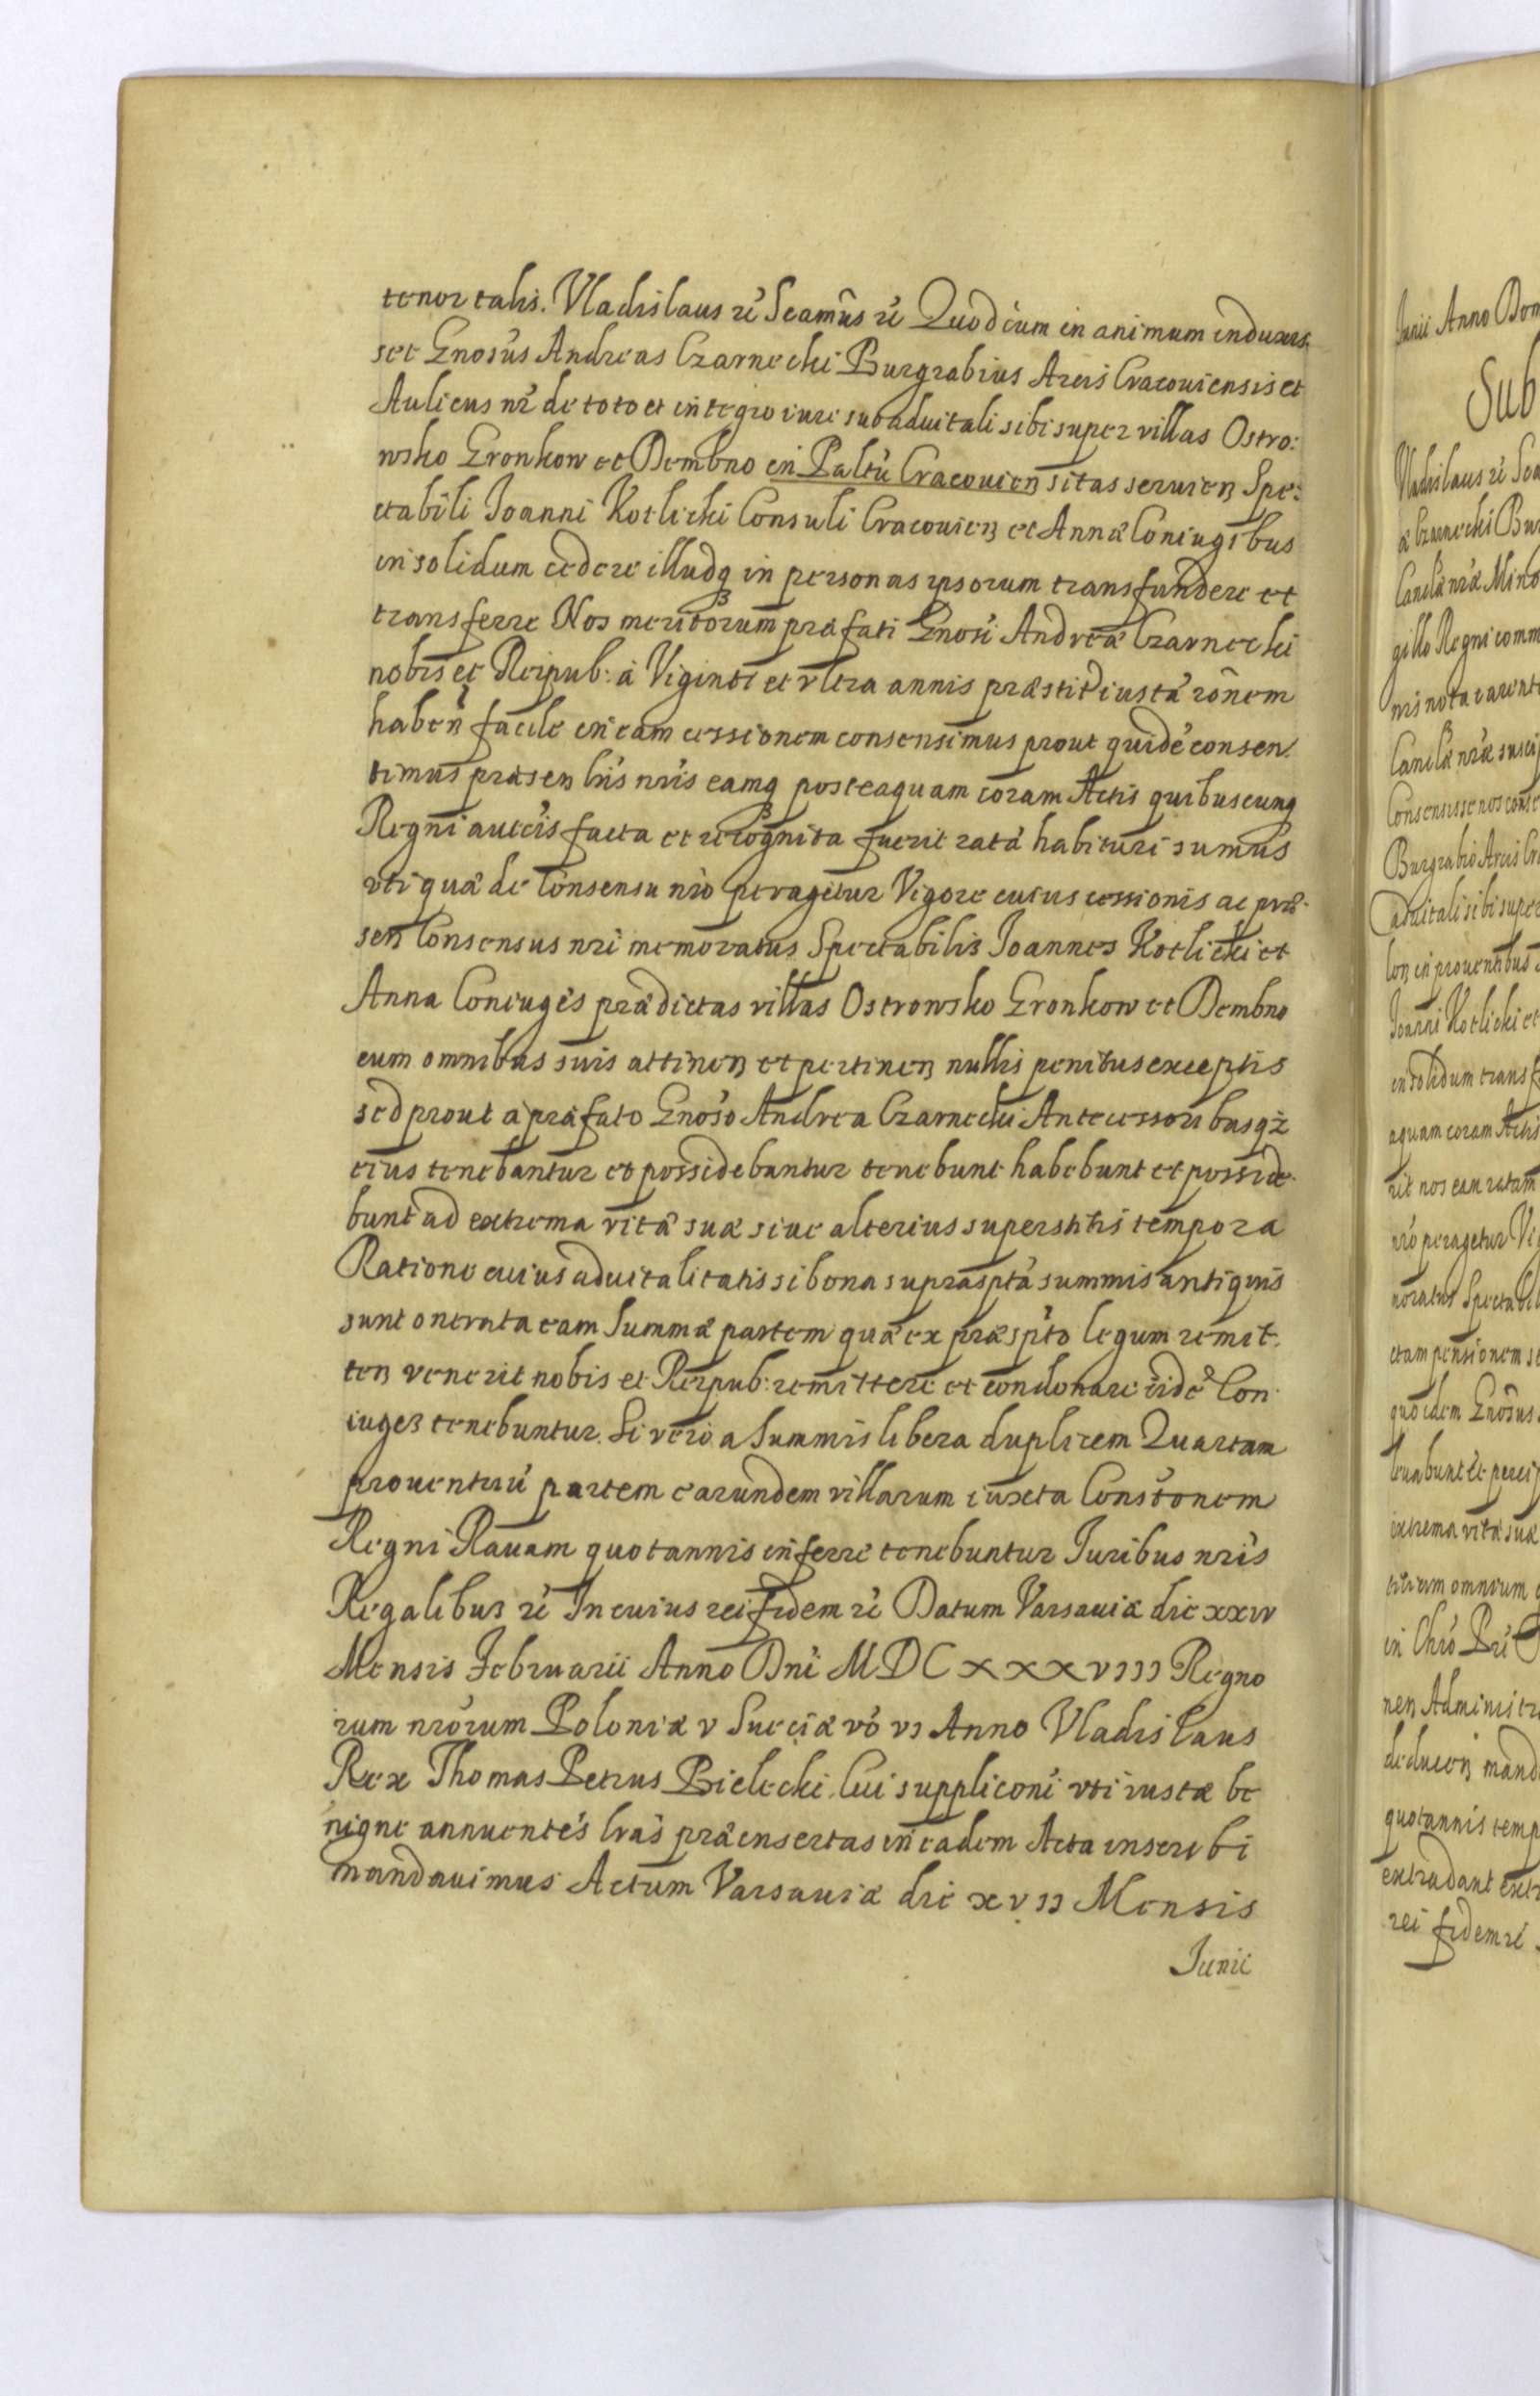 tenor talis. Vladislaus zć Scamûs zć Quod cum in animum induxis,
set Gnosus Andreas Czarnecki Burgrabius Arcis Cracouiensis et
Aulicus nr de toto et integro iure sub aduitali sibi super villas Ostro:
wsko Gronkow et Dembno in Paltu Cracouien sitas seruien Spe:
ctabili Joanni Kotlicki Consuli Cracouien et Annæ Coniugibus
in solidum cedere illudq in personas ipsorum transfundere et
transferre Nos meritorum præfati Gnosi Andreæ Czarnecki
nobis et Reipub: a Viginti et vltra annis præstit iusta rônem
haben facile in eam cessionem consensimus prout quidé consen
timus præsen lris nris eamq posteaquam coram Actis quibuscunq
Regni autcis facta et recognita fuerit rata habituri sumus
vti quæ de Consensu nro peragetur Vigore cuius cessionis ac præ
sen Consensus nri memoratus Spectabilis Joannes Kotlicki et
Anna Coniuges prædictas villas Ostrowsko Gronkow et Dembno
cum omnibus suis attinen et pertinen nullis penitus exceptis
sed prout a præfato Gnoso Andrea Czarnecki Antecessoribusq
eius tenebantur et possidebantur tenebunt habebunt et posside
bunt ad extrema vitæ suæ siue alterius superstitis tempora
Ratione cuius aduitalitatis si bona supraspta summis antiquis
sunt onerata eam Summæ partem quæ ex præspto legum remit
ten venerit nobis et Reipub: remittere et condonare iidé Con
iuges tenebuntur. Si vero a Summis libera duplicem Quartam
prouentuu partem earundem villarum iuxta Constonem
Regni Rauam quotannis inferre tenebuntur Juribus nris
Regalibus zć In cuius rei fidem zć Datum Varsauiæ die xxiv
Mensis Februarii Anno Dni MDCXXXVIII Regno
rum nrorum Poloniæ v Sueciæ vo vi Anno Vladislaus
Rex Thomas Petrus Bielecki. Cui suppliconi vti iustæ be
nigne annuentes lras præinsertas in eadem Acta inscribi
mandauimus Actum Varsauiæ die xvii Mensis
Junii
Junii Anno Dom
Sub
Vladislaus zć Sca
æ Czarnecki Bur
gillo Regni comm
Consensisse nos conse
Burgrabio Arcis Cr
aduitali sibi super
Joanni Kotlicki et
in solidum transf
aquam coram Actis
rit nos eam ratam
nro peragetur Vi
moratus Spectabil
ctam pensionem se
quo idem Gnosus
extrema vitæ suæ
nen Administra
deducen mand
quotannis temp
extradant extr
rei fidem zć